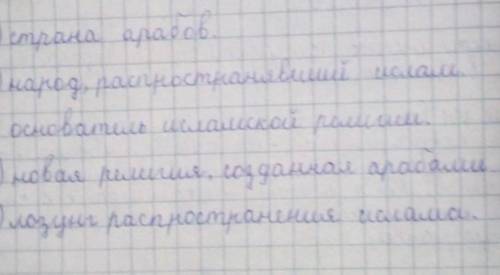 ) страна арабов.
) народ, распространявший ислам.
основатель исламской религии.
) новая религия, созданная арабами
) лозунг распространения ислама.